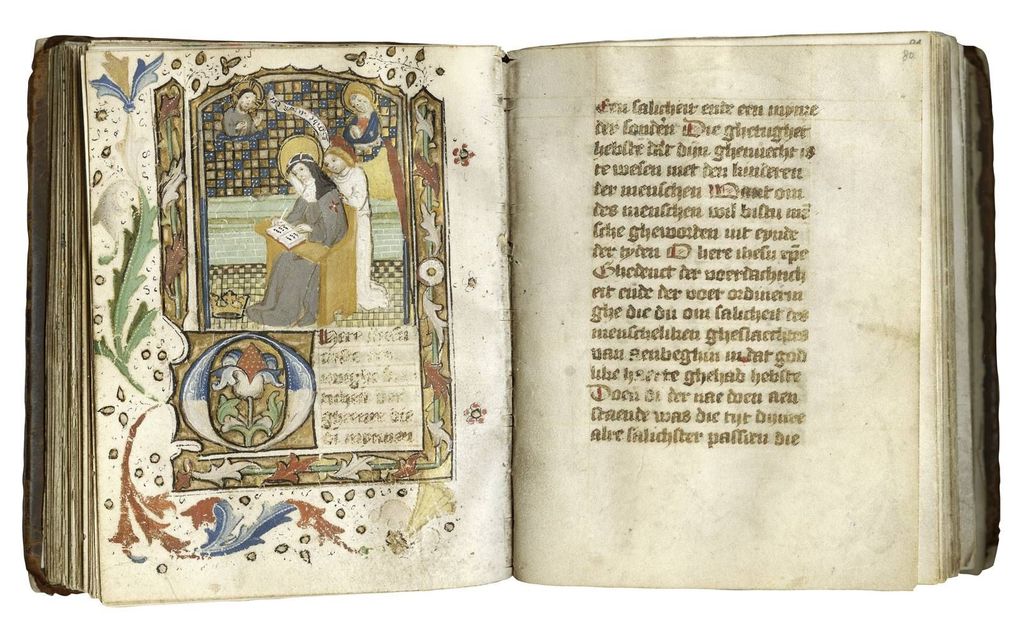 O
here ihesu
ghenne die
di mynnen
80
Een salicheit ende een mynre
der sonden Die ghetugher
hebste dat dijn ghenuecht is
te wesen met den kinderen
der menschen Want om
des menschen wil bistu mē
sche gheworden int eynde
der tyden O here ihesu xpe
Ghedenct der voerdachtich
eit ende der voer ordinerin
ghe die du om salicheit des
menscheliken gheslaechtes
van aenbeghin in dat god
like herte ghehad hebste
Doen di der nae doen aen
staende was die tyt dynre
alre salichster passien die